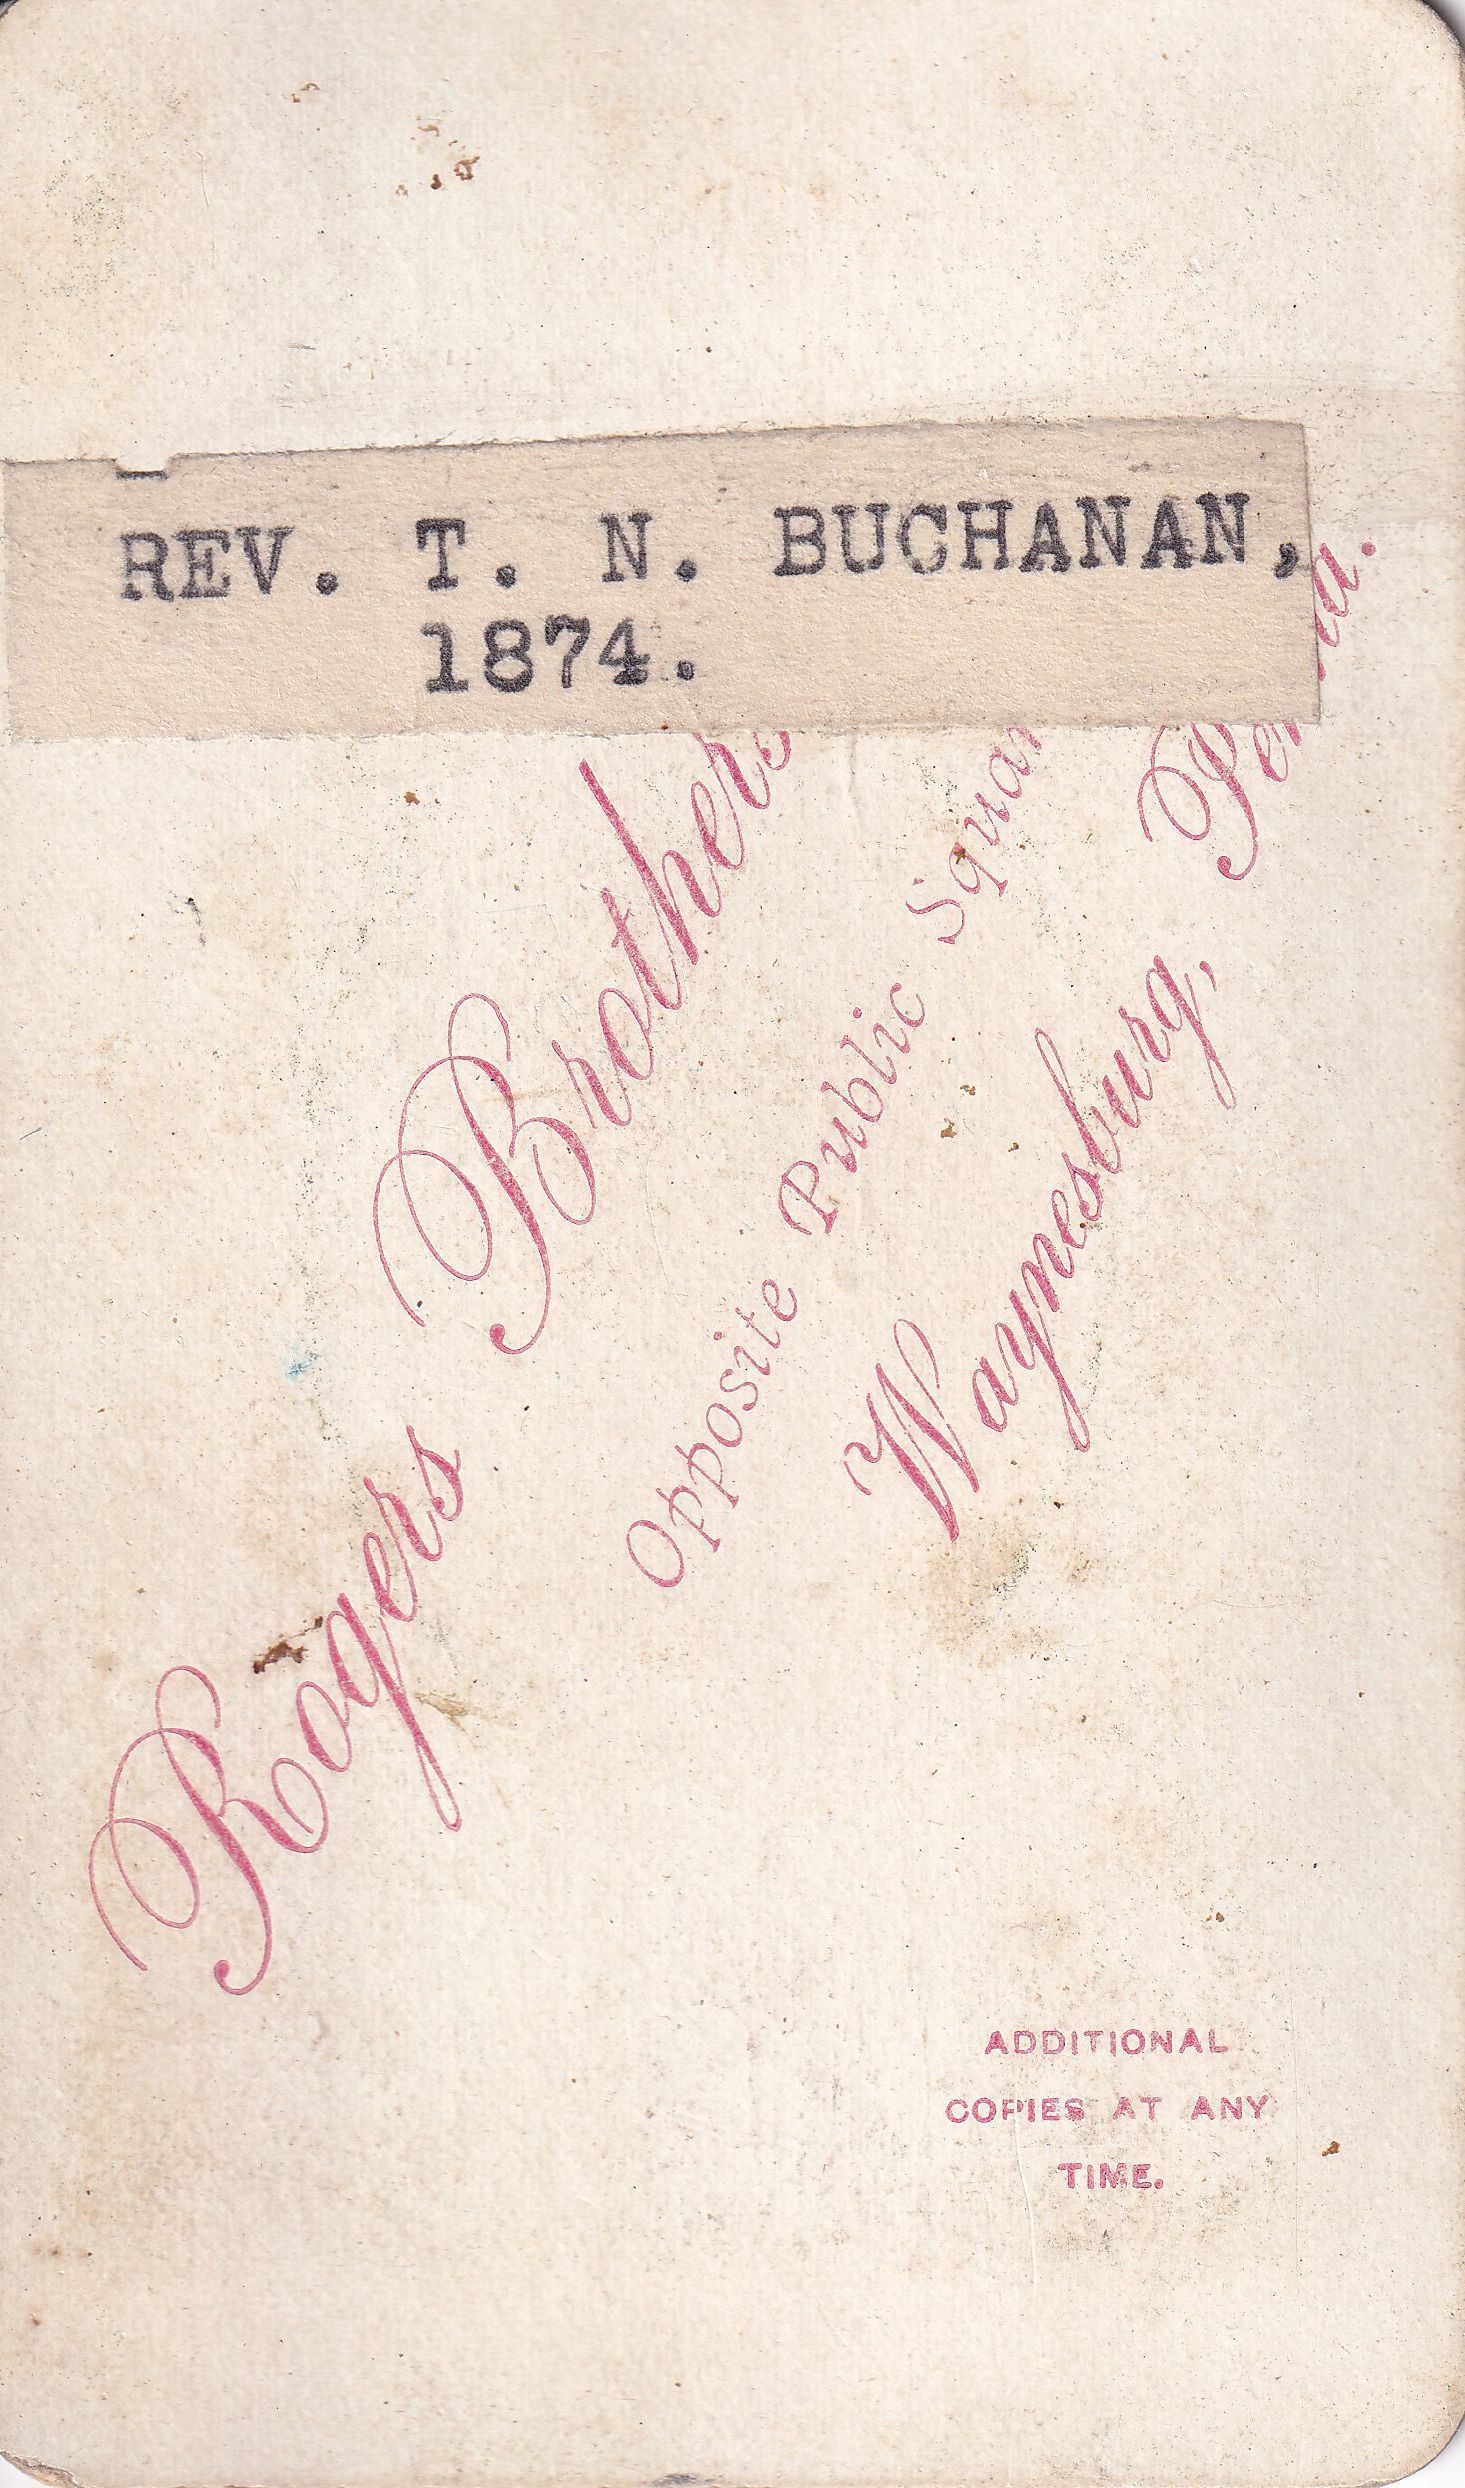 REV. T. N. BUCHANAN,
1874.
Rogers Brothers
Opposite Public
Waynesburg,
ADDITIONAL
COPIES AT ANY
TIME.